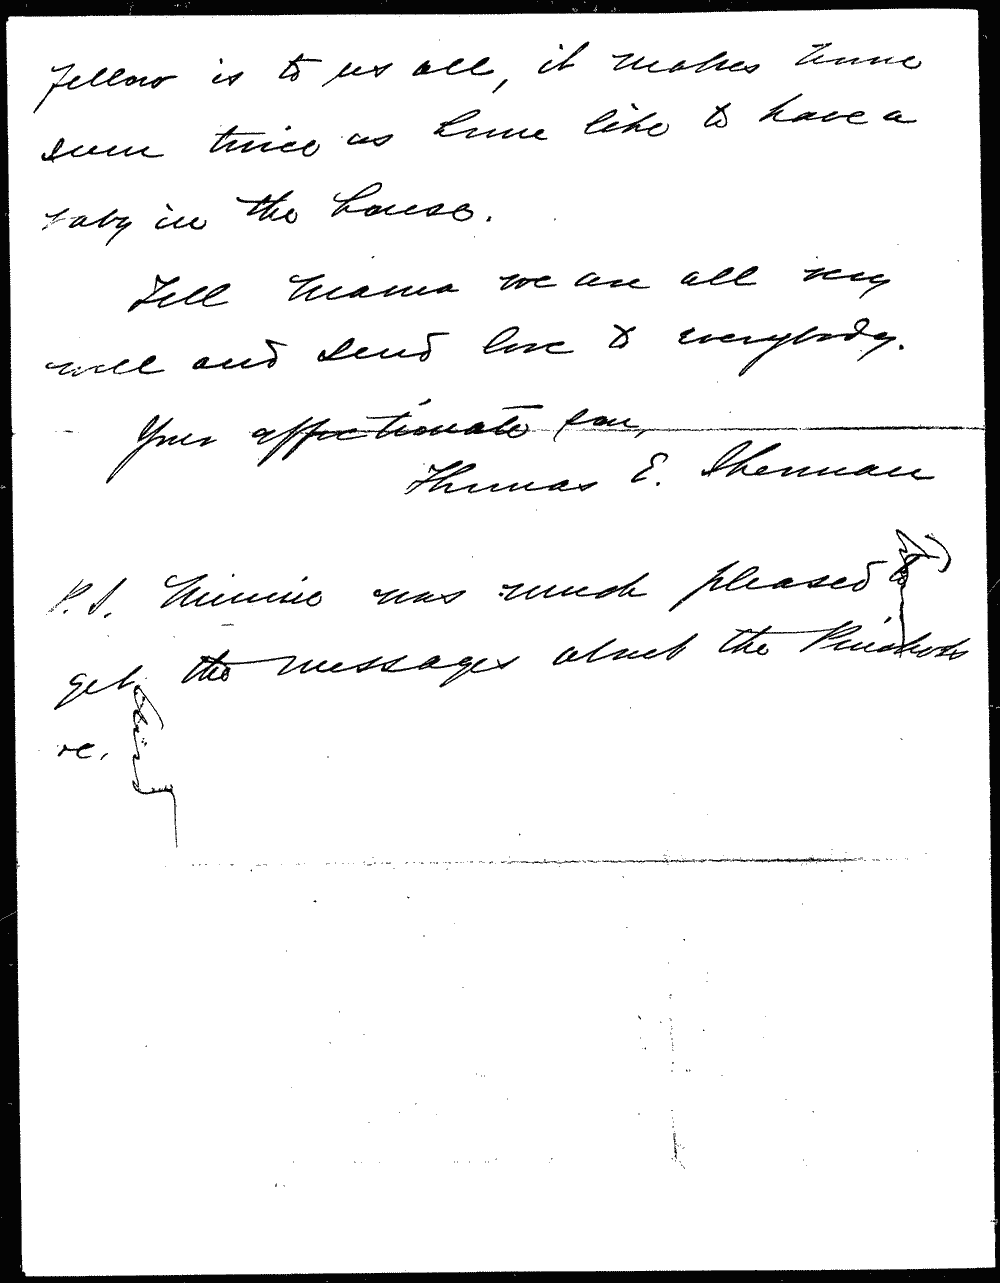 fellow is to us all, it makes home
seem twice as home like to have a
baby in the house.
Tell Mama we are all very
well and send love to everybody.
Your affectionate son,
Thomas E. Sherman
P.S. Minnie was much pleased to
get the messages about the